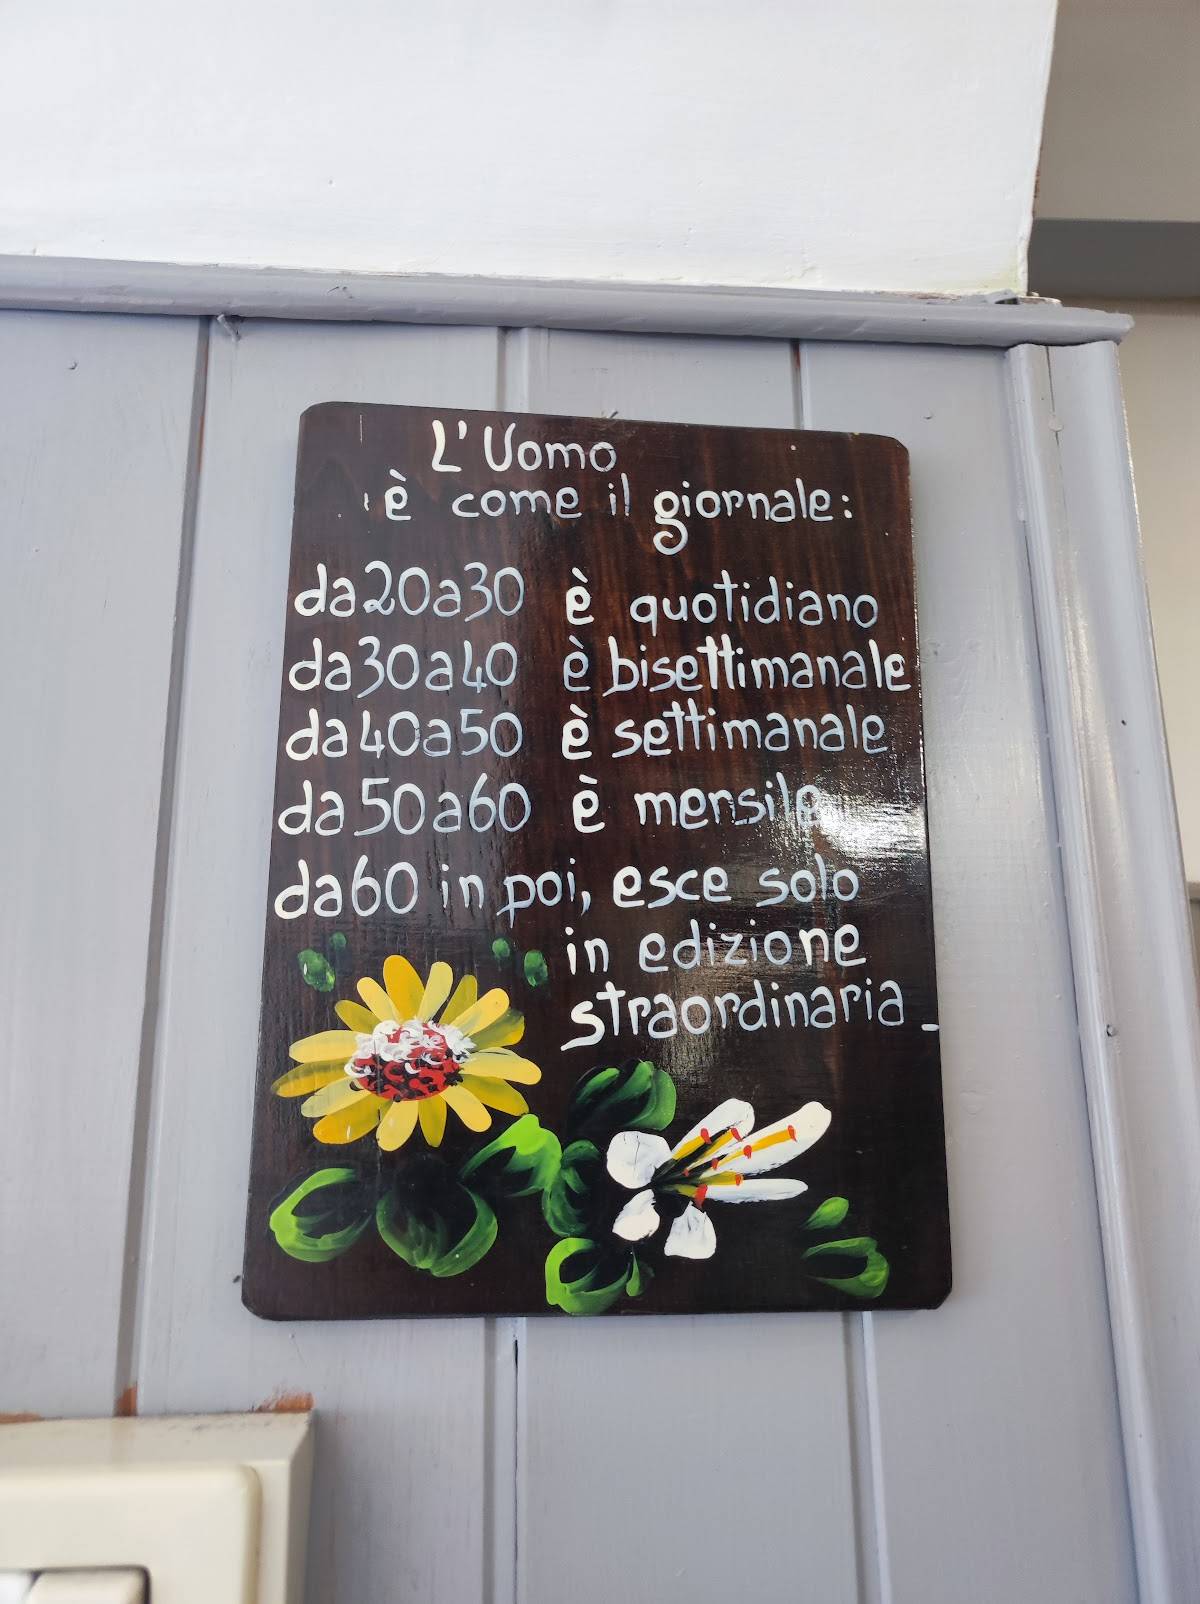 L'Uomo
è come il giornale:
da 20 a 30 è quotidiano
da 30 a 40 è bisettimanale
da 40 a 50 è settimanale
da 50 a 60 è mensile
da 60 in poi, esce solo
in edizione
straordinaria_